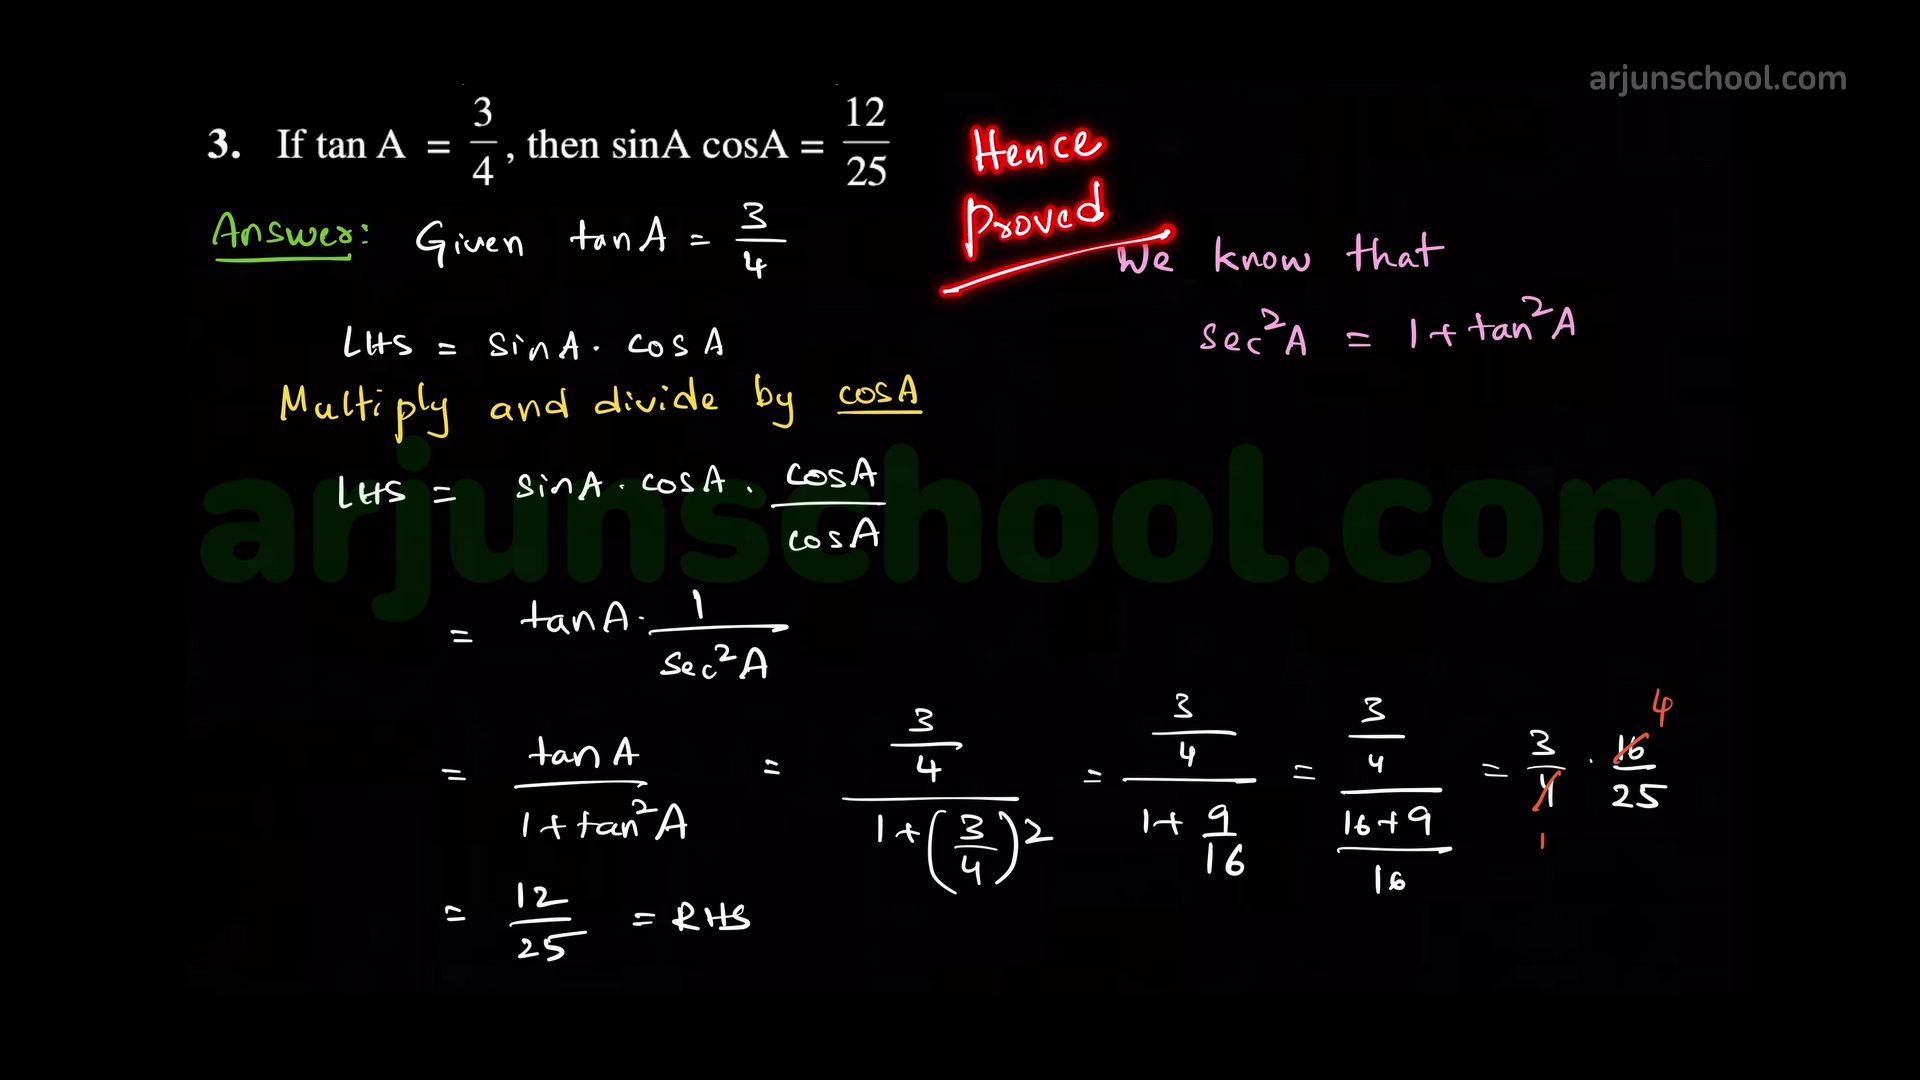 arjunschool.com
3. If tan A = 3/4, then sinA cosA = 12/25
Hence
Proved
Answer: Given tan A = 3/4
We know that
sec²A = 1 + tan²A
LHS = sinA · cosA
Multiply and divide by cosA
LHS = sinA · cosA · cosA/cosA
arjunschool.com
= tanA · 1/sec²A
= tanA/(1+tan²A) = (3/4)/(1+(3/4)2) = (3/4)/(1+9/16) = (3/4)/((16+9)/16) = 3/4 · 16/25
4
1
= 12/25 = RHS